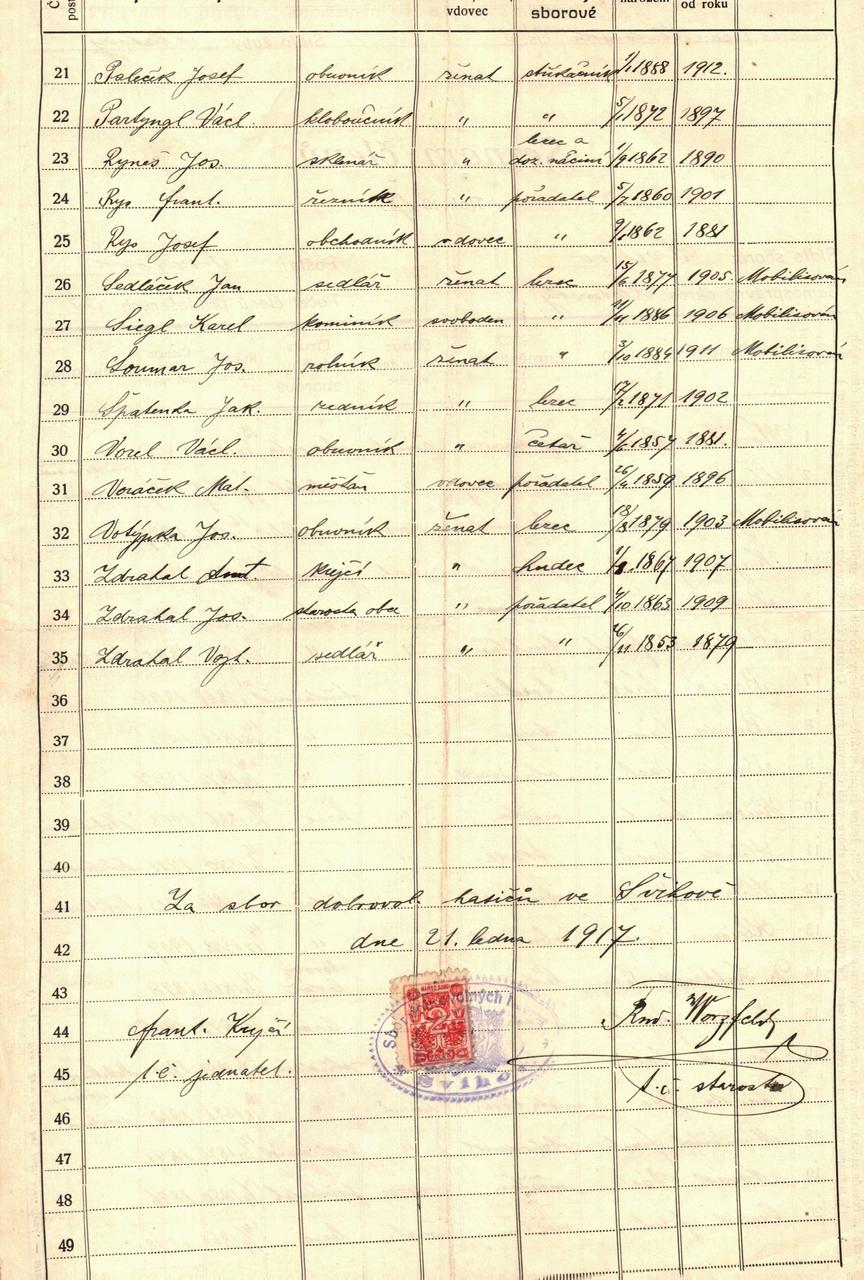 vdovec sborové od roku
21 Paleček Josef obuvník ženat stříkačník 1/1 1888 1912.
22 Partyngl Václ. kloboučník " " 5/1 1872 1897
23 Ryneš Jos. sklenář " lezec a doz. náčiní 1/9 1862 1890
24 Rys frant. řezník " pořadatel 5/7 1860 1901
25 Rys Josef obchodník vdovec " 1862 1881
26 Sedláček Jan sedlář ženat lezec 15/6 1877 1905. Mobilisován
27 Siegl Karel kominík svoboden " 1886 1906 Mobilisován
28 Soumar Jos. rolník ženat " 3/10 1884 1911 Mobilisován
29 Špatenka Jak. zedník " lezec 17/2 1871 1902
30 Vorel Václ. obuvník " četař 1857 1881.
31 Voráček Mat. měšťan vdovec pořadatel 1859 1896
32 Votýpka Jos. obuvník ženat lezec 18/8 1879 1903 Mobilisován
33 Zdrahal Ant. krejčí " hudec 1867 1907
34 Zdrahal Jos. starosta obce " pořadatel 1863 1909
35 Zdrahal Vojt. sedlář " " 1853 1879
36
37
38
39
40
41 Za sbor dobrovol. hasičů ve Švihově
42 dne 21. ledna 1917.
43
44 frant. Krejčí
45 t.č. jednatel. t.č. starosta
46
47
48
49
2